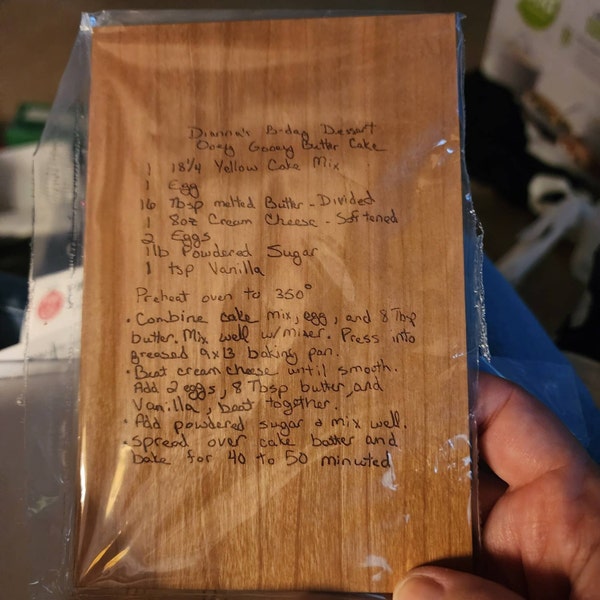 Dianna's B-day Dessert
Ooey Gooey Butter Cake
1 18¼ Yellow Cake Mix
1 Egg
16 Tbsp melted Butter - Divided
1 8oz Cream Cheese - Softened
2 Eggs
1 lb Powdered Sugar
1 tsp Vanilla
Preheat oven to 350°
• Combine cake mix, egg, and 8 Tbsp
butter. Mix well w/mixer. Press into
greased 9x13 baking pan.
• Beat cream cheese until smooth.
Add 2 eggs, 8 Tbsp butter, and
Vanilla, beat together.
• Add powdered sugar & mix well.
• Spread over cake batter and
bake for 40 to 50 minuted